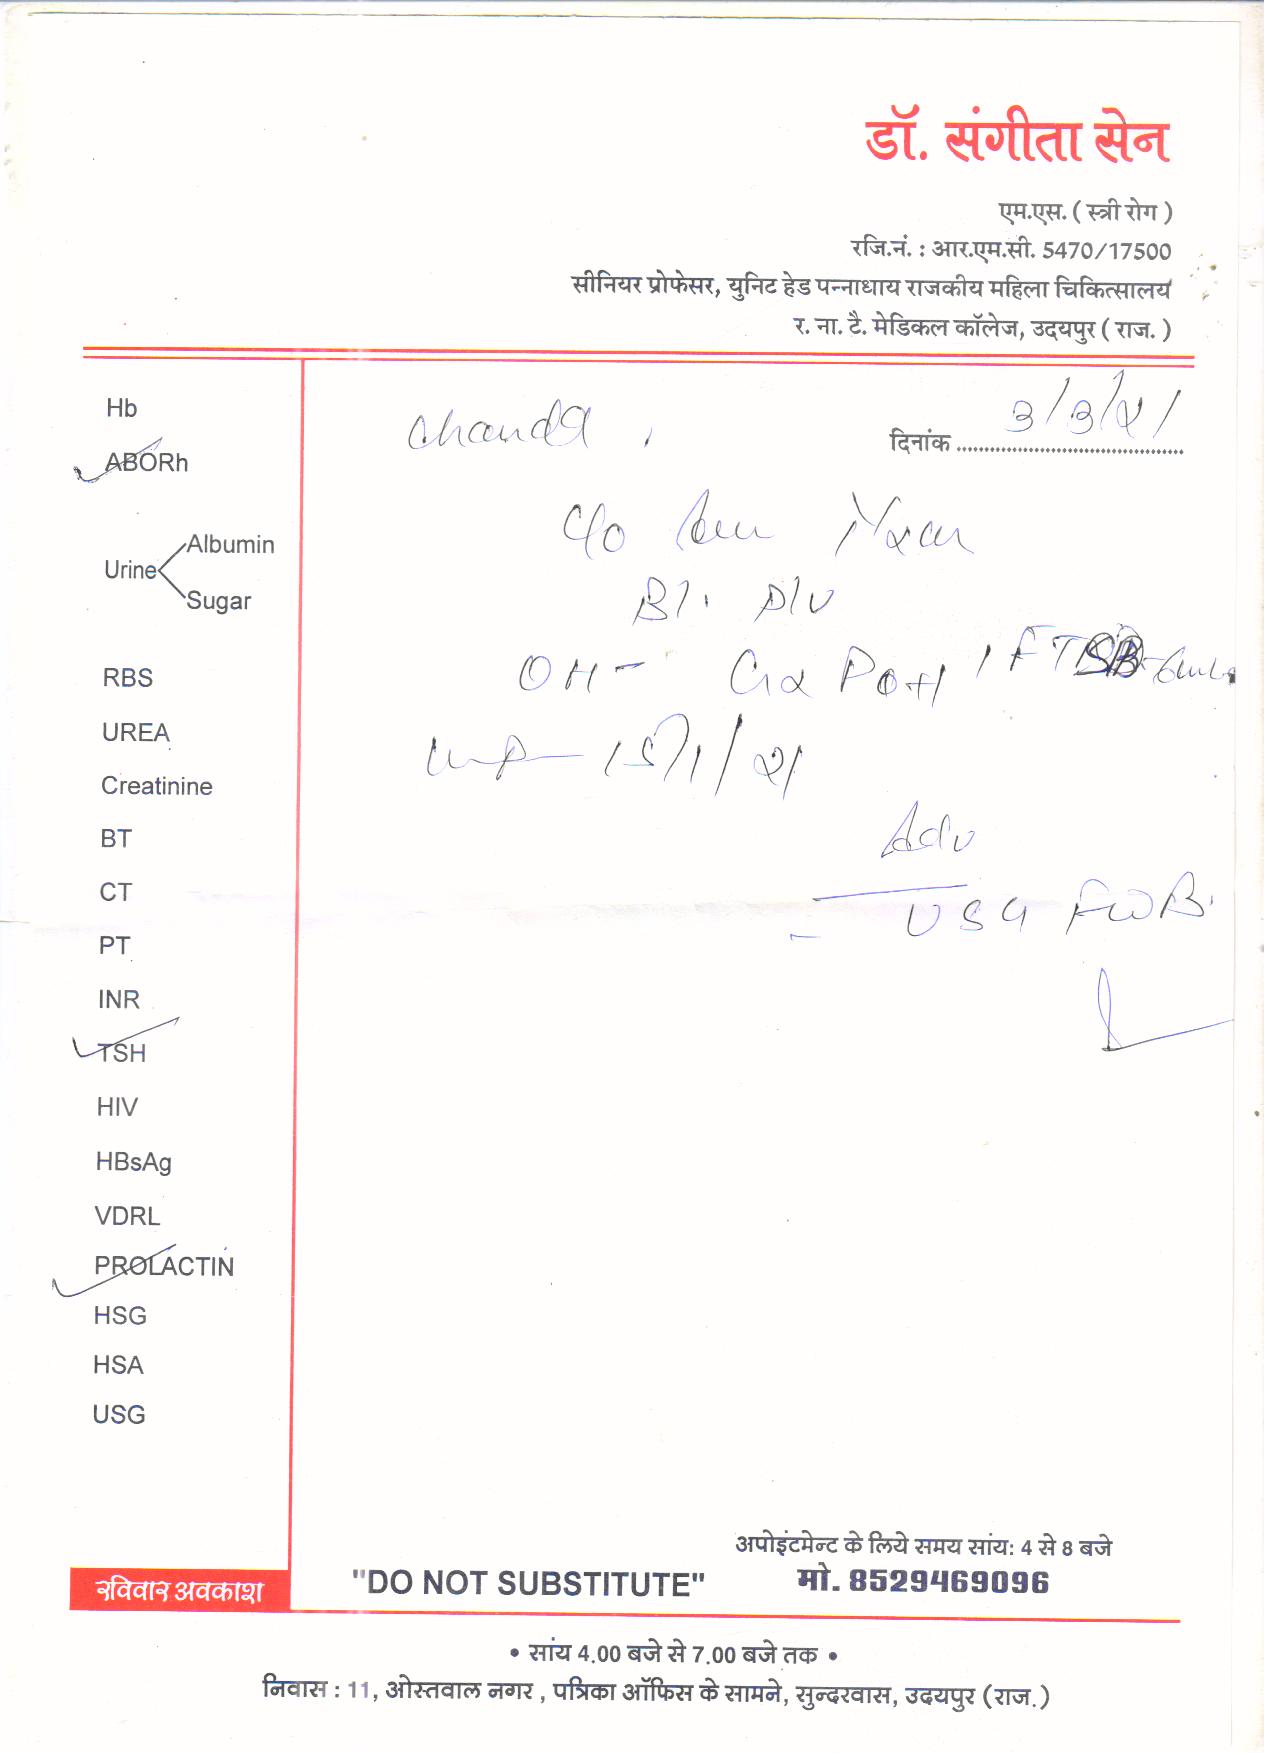 डॉ. संगीता सेन
एम.एस. ( स्त्री रोग )
रजि.नं. : आर.एम.सी. 5470/17500
सीनियर प्रोफेसर, युनिट हेड पन्नाधाय राजकीय महिला चिकित्सालय
र. ना. टै. मेडिकल कॉलेज, उदयपुर ( राज. )
दिनांक 3/3/21
Chanda
C/o
P/V
OH - G2 P0+1 / FT
15/1/21
Adv
- USG FWB.
Hb
ABORh
Urine
Albumin
Sugar
RBS
UREA
Creatinine
BT
CT
PT
INR
TSH
HIV
HBsAg
VDRL
PROLACTIN
HSG
HSA
USG
रविवार अवकाश
"DO NOT SUBSTITUTE"
अपोइंटमेन्ट के लिये समय सांय: 4 से 8 बजे
मो. 8529469096
• सांय 4.00 बजे से 7.00 बजे तक •
निवास : 11, ओस्तवाल नगर , पत्रिका ऑफिस के सामने, सुन्दरवास, उदयपुर (राज.)